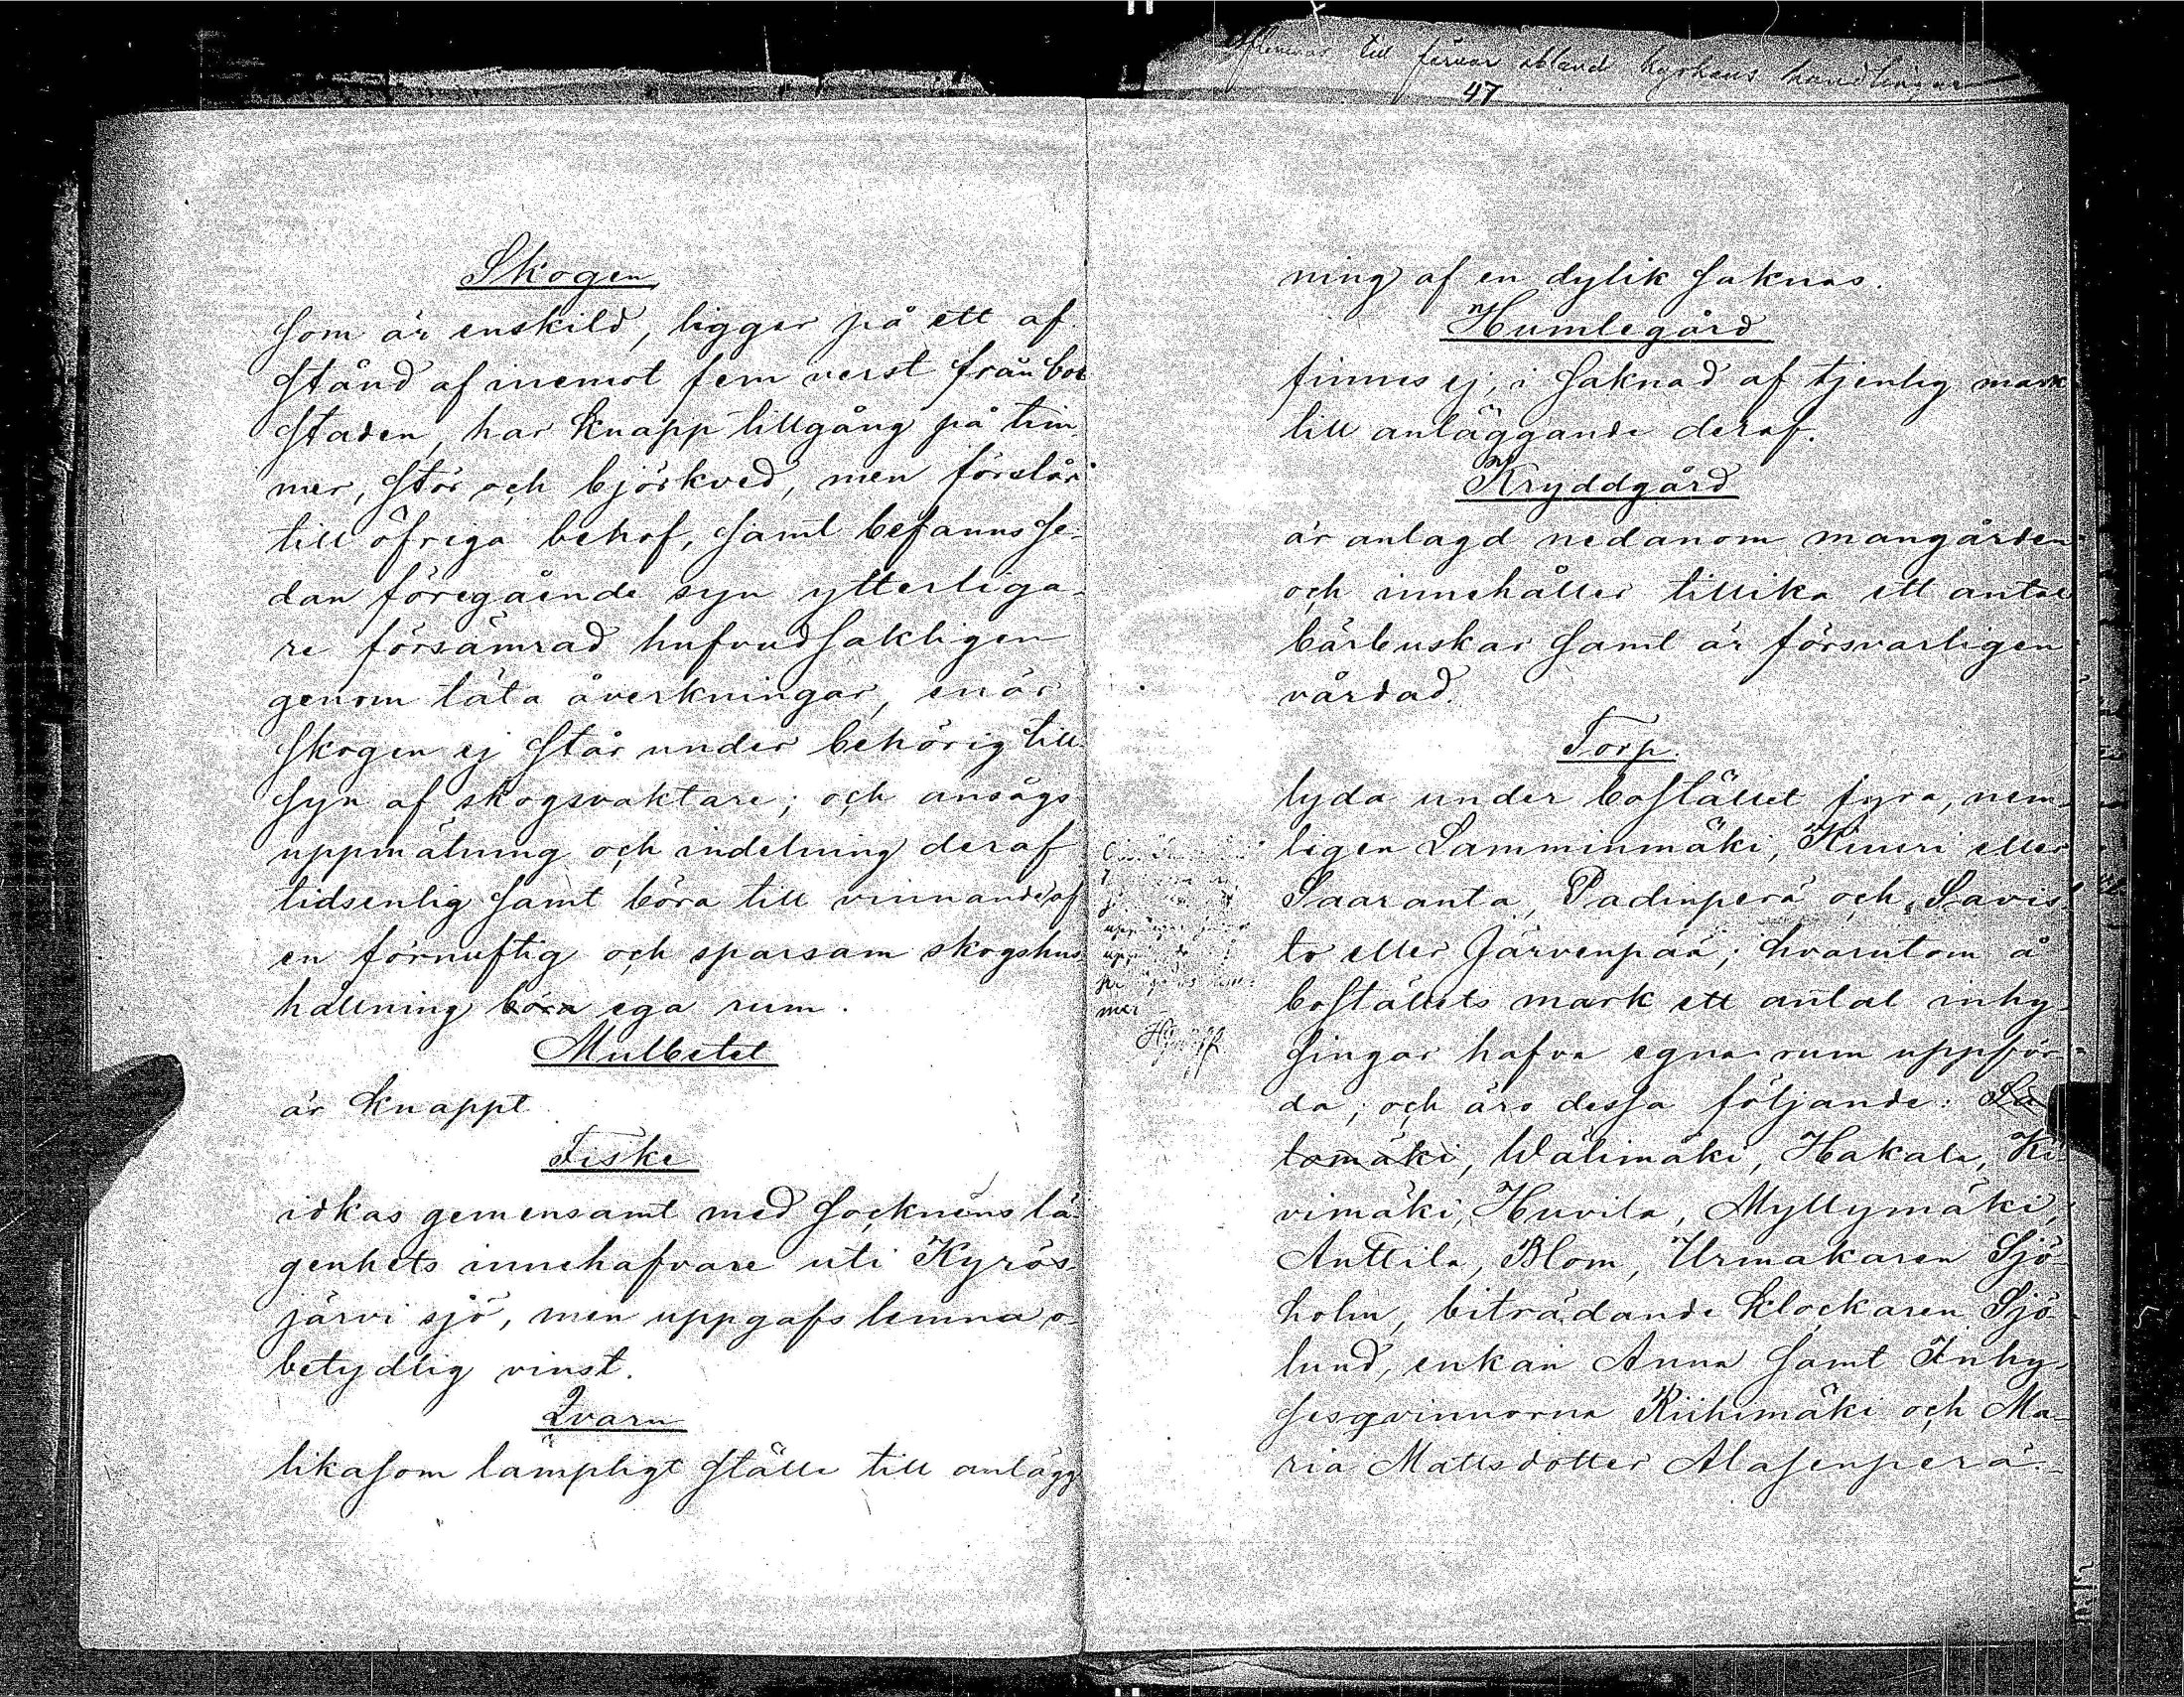 till förvar ibland kyrkans handlingar
47
Skogen
som är enskild, ligger på ett af
stånd af inemot fem verst från bo
staden, har knapp tillgång på tim-
mer, stör och björkved, men förslår
till öfriga behof, samt befanns se-
dan föregående syn ytterliga-
re försämrad hufvudsakligen
genom täta åverkningar, enär
skogen ej står under behörig till-
syn af skogsvaktare; och ansågs
uppmätning och indelning deraf
tidsenlig samt böra till vinnande af
en förnuftig och sparsam skogshus
hållning böra ega rum.
Mulbetet
är knappt
Fiske
idkas gemensamt med socknens lä-
genhets innehafvare uti Kyrös-
järvi sjö, men uppgafs lemna o-
betydlig vinst.
Qvarn
likasom lämpligt ställe till anlägg
mer
ning af en dylik saknas.
Humlegård
finnes ej, i saknad af tjenlig mark
till anläggande deraf.
Kryddgård
är anlagd nedanom mangården
och innehåller tillika ett antal
bärbuskar samt är försvarligen
vårdad.
Torp.
lyda under bostället fyra, nem-
ligen Lamminmäki, Kiueri eller
Saaranta, Padinperä och Savis
to eller Järvenpää; hvarutom å
boställets mark ett antal inhy-
singar hafva egna rum uppför-
da; och äro dessa följande: La
tomäki, Wälimäki, Hakala, Ki-
vimäki, Huvila, Myllymäki,
Anttila, Blom, Urmakaren Sjö-
holm, biträdande klockaren Sjö-
lund, enkan Anna samt Inhy-
sesqvinnorna Riihimäki och Ma-
ria Mattsdotter Alasenperä.-